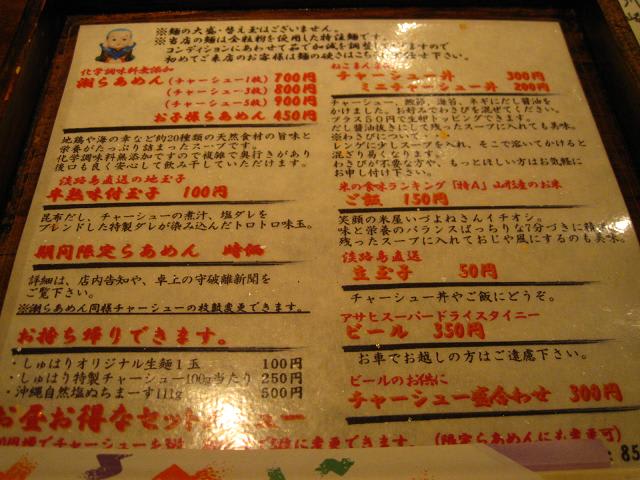 ※麺の大盛・替え玉はございません。
※当店の麺は全粒粉を使用した特注麺です。
コンディションにあわせて茹で加減を調整して
ますので
初めてご来店のお客様は麺の硬さはこちらに
せ下さい。
化学調味料無添加
潮らあめん(チャーシュー1枚) 700円
(チャーシュー3枚) 800円
(チャーシュー5枚) 900円
お子様らあめん 450円
地鶏や海の幸など約20種類の天然食材の旨味と
栄養がたっぷり詰まったスープです。
化学調味料無添加ですので複雑で奥行きがあり
後口も良く安心して飲み干していただけます。
淡路島直送の地玉子
半熟味付玉子 100円
昆布だし、チャーシューの煮汁、塩ダレを
ブレンドした特製ダレが染み込んだトロトロ味玉。
期間限定らあめん 時価
詳細は、店内告知や、卓上の守破離新聞を
ご覧下さい。
※潮らあめん同様チャーシューの枚数変更できます。
お持ち帰りできます。
・しゅはりオリジナル生麺1玉 100円
・しゅはり特製チャーシュー100g当たり 250円
・沖縄自然塩ぬちまーす111g 500円
お昼お得なセットメニュー
チャーシュー丼 300円
ミニチャーシュー丼 200円
チャーシュー、鰹節、海苔、ネギにだし醤油を
かけました。お好みでわさびを混ぜてください。
プラス50円で生卵トッピングできます。
だし醤油抜きにして残ったスープに入れても美味。
※わさびについて・・・
レンゲに少しスープを入れ、そこで溶いてかけると
混ざり易くなります。
わさびが不要な方や、もっとほしい方はお気軽に
お申し付け下さい。
米の食味ランキング「特A」山形産のお米
ご飯 150円
笑顔の米屋いづよねさんイチオシ。
味と栄養のバランスばっちりな7分づきに精
残ったスープに入れておじや風にするのも美味。
淡路島直送
生玉子 50円
チャーシュー丼やご飯にどうぞ。
アサヒスーパードライスタイニー
ビール 350円
お車でお越しの方はご遠慮下さい。
ビールのお供に
チャーシュー盛合わせ 300円
に変更できます。(限定らあめんにも変更可)